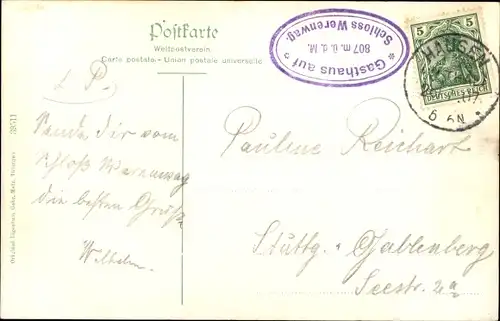 Postkarte
Weltpostverein.
Carte postale - Union postale universelle
* Gasthaus auf *
Schloss Werenwag.
807 m ü. d. M.
5 5
DEUTSCHES REICH
HAUSEN
07
6-7N.
L. P.
Sende dir vom
Schloß Werenwag
die besten Grüße
Wilhelm.
Pauline Reichart
Stuttg. - Gablenberg
Seestr.